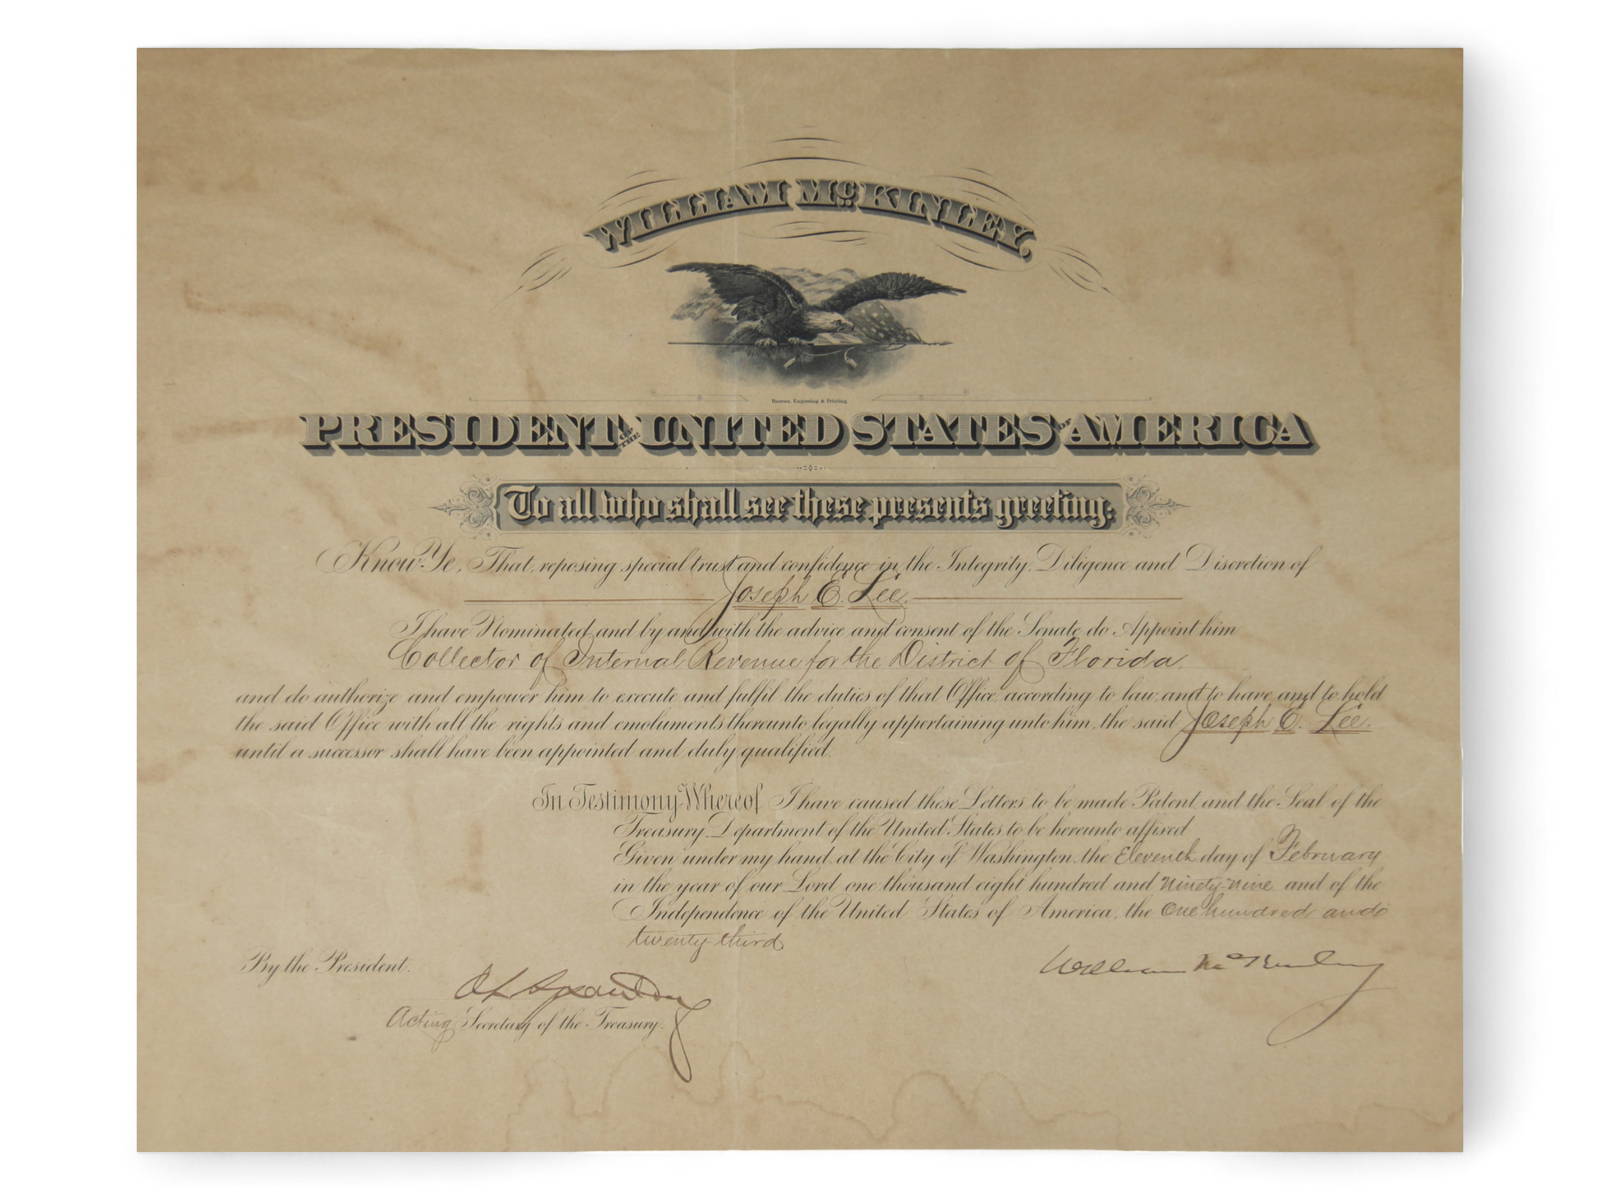 WILLIAM McKINLEY,
Bureau, Engraving & Printing.
PRESIDENT OF THE UNITED STATES OF AMERICA
To all who shall see these presents greeting:
Know Ye, That, reposing special trust and confidence in the Integrity, Diligence and Discretion of
Joseph E. Lee.
I have Nominated and by and with the advice and consent of the Senate do Appoint him
Collector of Internal Revenue for the District of Florida,
and do authorize and empower him to execute and fulfil the duties of that Office according to law, and to have and to hold
the said Office with all the rights and emoluments thereunto legally appertaining unto him, the said Joseph E. Lee.
until a successor shall have been appointed and duly qualified.
In Testimony Whereof I have caused these Letters to be made Patent and the Seal of the
Treasury Department of the United States to be hereunto affixed
Given under my hand, at the City of Washington, the Eleventh day of February
in the year of our Lord one thousand eight hundred and ninety-nine and of the
Independence of the United States of America, the One hundred and
twenty-third
By the President: William McKinley
O L Spaulding
Acting Secretary of the Treasury.